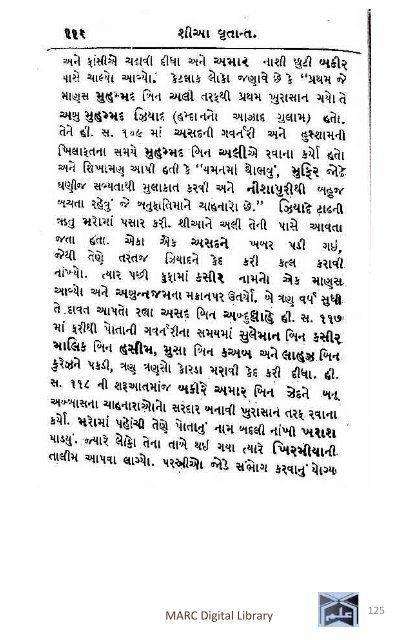 ૧૧૬ શીઆ વૃતાન્ત.
અને ફાંસીએ ચઢાવી દીધા અને અમાર નાશી છુટી બકીર
પાસે ચાલ્યો આવ્યો. કેટલાક લોકો જણાવે છે કે “પ્રથમ જે
માણસ મુહમ્મદ બિન અલી તરફથી પ્રથમ ખુરાસાન ગયો તે
અબુ મુહમ્મદ ઝિયાદ (હમ્દાનનો આઝાદ ગુલામ) હતો.
તેને હી. સ. ૧૦૯ માં અસદની ગવર્નરી અને હુશ્શામની
ખિલાફતના સમયે મુહમ્મદ બિન અલીએ રવાના કર્યો હતો
અને શિખામણ આપી હતી કે “યમનમાં થોભવું, મુઝિર જોડે
ઘણીજ સભ્યતાથી મુલાકાત કરવી અને નીશાપુરીથી બહુજ
બચતા રહેવું જે બનુફાતિમાને ચાહનારો છે.” ઝિયાદે ટાઢની
ઋતુ મરોમાં પસાર કરી. શીઆને અલી તેની પાસે આવતા
જતા હતા. એકા એક અસદને ખબર પડી ગઇ,
જેથી તેણે તરતજ ઝિયાદને કેદ કરી કત્લ કરાવી
નાંખ્યો. ત્યાર પછી કુફામાં કસીર નામનો એક માણસ
આવ્યો અને અબુન્નજમના મકાનપર ઉતર્યો. બે ત્રણ વર્ષ સુધી
તે દાવત આપતો રહ્યા અસદ બિન અબ્દુલ્લાહે હી. સ. ૧૧૭
માં ફરીથી પોતાની ગવર્નરીના સમયમાં સુલેમાન બિન કસીર
માલિક બિન હુસીમ, મુસા બિન કઅબ અને લાહુઝ બિન
કુરેઝને પકડી, ત્રણ ત્રણસો કારડા મરાવી કેદ કરી દીધા. હી.
સ. ૧૧૮ ની શરૂઆતમાંજ બકીરે અમાર બિન ઝેદને બનૂ
અબ્બાસના ચાહનારાઓનો સરદાર બનાવી ખુરાસાન તરફ રવાના
કર્યો. મરોમાં પહોંચી તેણે પોતાનું નામ બદલી નાંખી ખરાશ
પાડયું. જ્યારે લોકો તેના તાબે થઈ ગયા ત્યારે ખિરમીયાની
તાલીમ આપવા લાગ્યો. પરસ્ત્રીઓ જોડે સંભોગ કરવાનું યોગ્ય
MARC Digital Library
علم
125